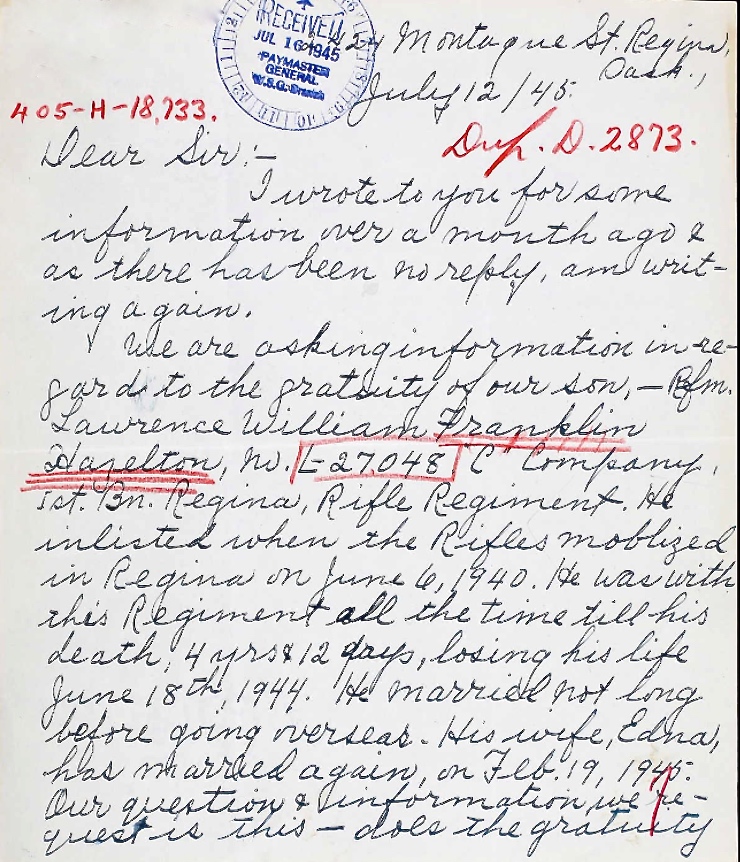 RECEIVED
JUL 16 1945
PAYMASTER
GENERAL
W.S.G. Branch
24 Montague St. Regina,
Sask.,
July 12/45.
405-H-18,733.
Dup. D. 2873.
Dear Sir:-
I wrote to you for some
information over a month ago &
as there has been no reply, am writ-
ing again.
We are asking information in re-
gard to the gratuity of our son, - Rfm.
Lawrence William Franklin
Hazelton, No. L-27048 "C" Company,
1st. Bn. Regina, Rifle Regiment. He
inlisted when the Rifles moblized
in Regina on June 6, 1940. He was with
this Regiment all the time till his
death, 4 yrs & 12 days, losing his life
June 18th, 1944. He married not long
before going overseas. His wife, Edna,
has married again, on Feb. 19, 1945.
Our question & information we re-
quest is this - does the gratuity